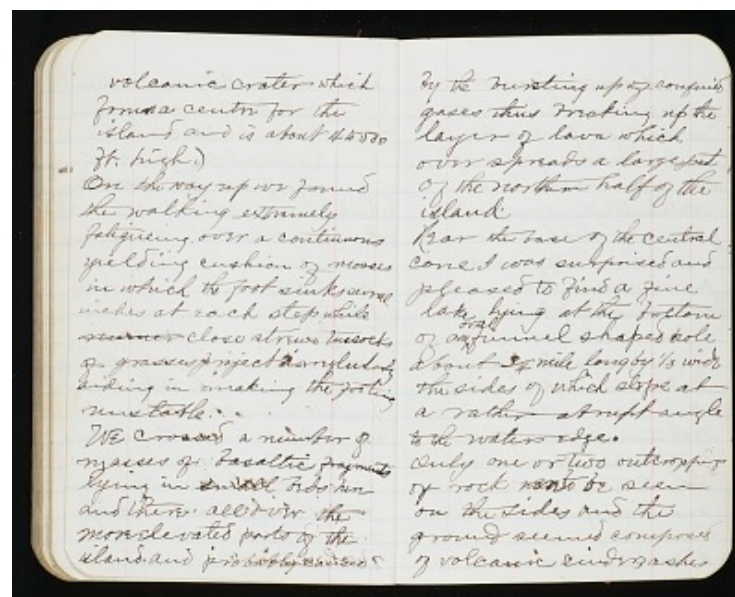 volcanic crater which
forms a center for the
island and is about
ft. high.)
On the way up we found
the walking extremely
fatigueing over a continuous
yielding cushion of mosses
in which the foot sinks some
inches at each step while
close strewn tussocks
of grasses project
aiding in making the footing
unstable.
We crossed a number of
masses of basaltic fragments
lying in small beds here
and there all over the
more elevated parts of the
island and probably caused
by the bursting up of confined
gases thus breaking up the
layer of lava which
over spreads a large part
of the northern half of the
island.
Near the base of the central
cone I was surprised and
pleased to find a fine
lake lying at the bottom
of an oval funnel shaped hole
about mile long by 1/3 wide
the sides of which slope at
a rather abrupt angle
to the waters edge.
Only one or two outcroppings
of rock were to be seen
on the sides and the
ground seemed composed
of volcanic cinder ashes